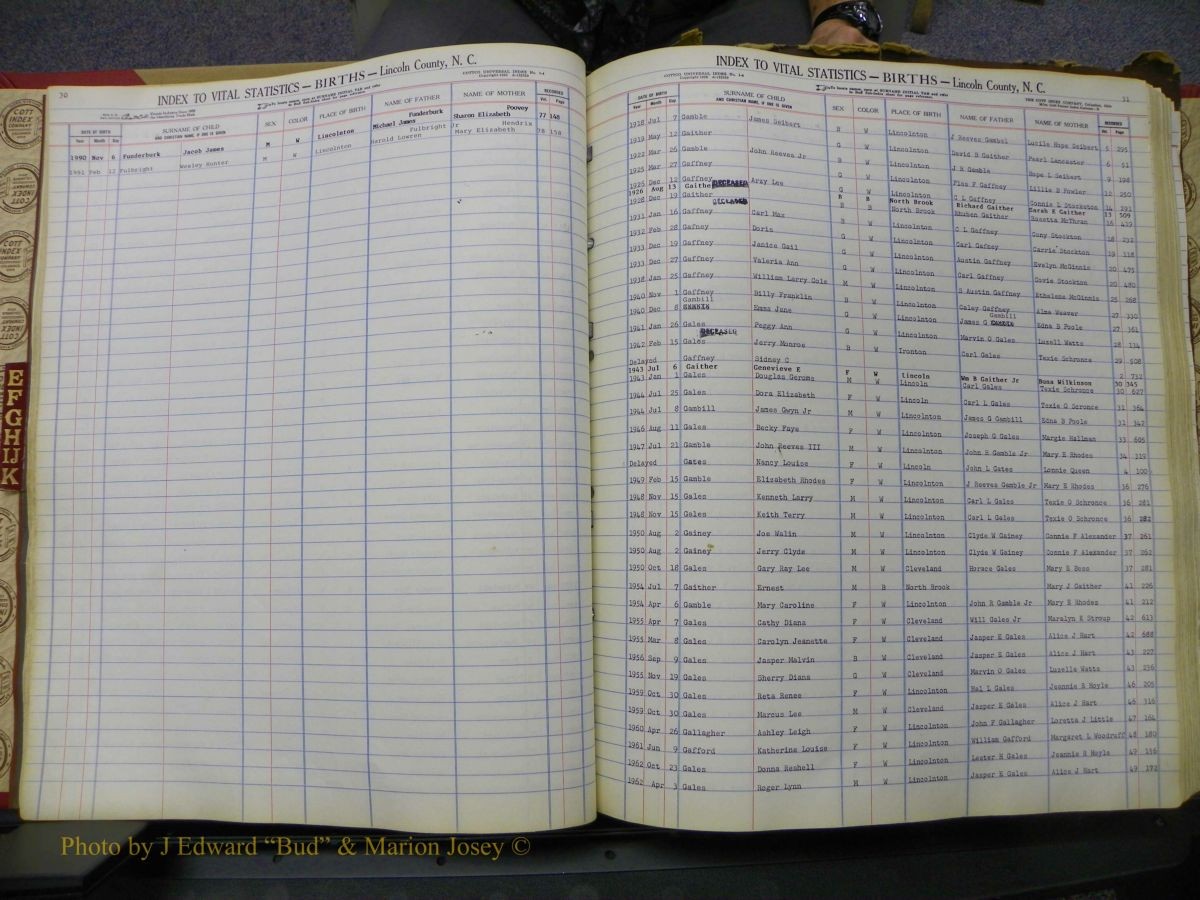 30
INDEX TO VITAL STATISTICS — BIRTHS — Lincoln County, N. C.
COTT
INDEX
COMPANY
DATE OF BIRTH
Year Month Day
SURNAME OF CHILD
AND CHRISTIAN NAME, IF ONE IS GIVEN
SEX
COLOR
PLACE OF BIRTH
NAME OF FATHER
NAME OF MOTHER
RECORDED
Vol. Page
1990 Nov 6 Funderburk Jacob James M W Lincolnton Funderburk Michael James Poovey Sharon Elizabeth 77 148
1991 Feb 12 Fulbright Wesley Hunter M W Lincolnton Fulbright Jr Harold Lowren Hendrix Mary Elizabeth 78 158
E
F
G
H
IJ
K
31
INDEX TO VITAL STATISTICS — BIRTHS — Lincoln County, N. C.
DATE OF BIRTH
Year Month Day
SURNAME OF CHILD
AND CHRISTIAN NAME, IF ONE IS GIVEN
SEX
COLOR
PLACE OF BIRTH
NAME OF FATHER
NAME OF MOTHER
RECORDED
Vol. Page
1918 Jul 7 Gamble James Seibert W Lincolnton J Reeves Gambel Lucile Hope Seibert 5 295
1919 May 12 Gaither W Lincolnton David B Gaither Pearl Lancaster 6 51
1922 Mar 26 Gamble John Reeves Jr B W Lincolnton J R Gamble Hope L Seibert 9 198
1925 Mar 27 Gaffney G W Lincolnton Plas F Gaffney Lillie B Fowler 12 250
1926 Dec 12 Gaffney DECEASED Arzy Lee G W Lincolnton C L Gaffney Connie L Stockston 14 291
1926 Aug 13 Gaither B B North Brook Richard Gaither Sarah E Gaither 13 509
1928 Dec 19 Gaither DECEASED B B North Brook Rhuben Gaither Rosetta McThran 16 419
1931 Jan 16 Gaffney Carl Max B W Lincolnton C L Gaffney Cony Stockton 18 232
1932 Feb 28 Gafney Doris G W Lincolnton Carl Gafney Carrie Stockton 19 118
1933 Dec 19 Gaffney Janice Gail G W Lincolnton Austin Gaffney Evelyn McGinnis 20 475
1933 Dec 27 Gaffney Valeria Ann G W Lincolnton Carl Gaffney Covie Stockton 20 480
1938 Jan 25 Gaffney William Larry Cole M W Lincolnton S Austin Gaffney Ethelene McGinnis 25 268
1940 Nov 1 Gaffney Billy Franklin B W Lincolnton Coley Gaffney Alma Weaver 27 330
1940 Dec 8 Gambill Emma June G W Lincolnton James G Gambill Edna B Poole 27 361
1941 Jan 26 Gales DECEASED Peggy Ann G W Lincolnton Marvin O Gales Luzell Watts 28 134
1942 Feb 15 Gales Jerry Monroe B W Ironton Carl Gales Texie Schronce 29 508
Delayed Gaffney Sidney C 2 732
1943 Jul 6 Gaither Genevieve E F W Lincoln Wm B Gaither Jr Buna Wilkinson 30 345
1943 Jan 1 Gales Douglas Gerome M W Lincoln Carl Gales Texie Schronce 30 627
1944 Jul 25 Gales Dora Elizabeth F W Lincoln Carl L Gales Texie O Scronce 31 364
1944 Jul 8 Gambill James Gwyn Jr M W Lincolnton James G Gambill Edna B Poole 31 342
1946 Aug 11 Gales Becky Faye F W Lincolnton Joseph G Gales Margie Hallman 33 605
1947 Jul 21 Gamble John Reeves III M W Lincolnton John R Gamble Jr Mary E Rhodes 34 319
Delayed Gates Nancy Louise F W Lincoln John L Gates Lonnie Queen 4 100
1949 Feb 15 Gamble Elizabeth Rhodes F W Lincolnton J Reeves Gamble Jr Mary E Rhodes 36 276
1948 Nov 15 Gales Kenneth Larry M W Lincolnton Carl L Gales Texie O Schronce 36 281
1948 Nov 15 Gales Keith Terry M W Lincolnton Carl L Gales Texie O Schronce 36 282
1950 Aug 2 Gainey Joe Walin M W Lincolnton Clyde W Gainey Connie F Alexander 37 261
1950 Aug 2 Gainey Jerry Clyde M W Lincolnton Clyde W Gainey Connie F Alexander 37 262
1950 Oct 18 Gales Gary Ray Lee M W Cleveland Horace Gales Mary E Bess 37 281
1954 Jul 7 Gaither Ernest M B North Brook Mary J Gaither 41 226
1954 Apr 6 Gamble Mary Caroline F W Lincolnton John R Gamble Jr Mary E Rhodes 41 212
1955 Apr 7 Gales Cathy Diana F W Cleveland Will Gales Jr Maralyn K Stroup 42 613
1955 Mar 8 Gales Carolyn Jeanette F W Cleveland Jasper E Gales Alice J Hart 42 688
1956 Sep 9 Gales Jasper Malvin B W Cleveland Jasper E Gales Alice J Hart 43 227
1955 Nov 19 Gales Sherry Diana G W Cleveland Marvin O Gales Luzelle Watts 43 236
1959 Oct 30 Gales Reta Renee F W Lincolnton Hal L Gales Jeannie R Hoyle 46 205
1959 Oct 30 Gales Marcus Lee M W Cleveland Jasper E Gales Alice J Hart 46 316
1960 Apr 26 Gallagher Ashley Leigh F W Lincolnton John F Gallagher Loretta J Little 47 164
1961 Jun 9 Gafford Katherine Louise F W Lincolnton William Gafford Margaret L Woodruff 48 180
1962 Oct 23 Gales Donna Reshell F W Lincolnton Lester H Gales Jeannie R Hoyle 49 156
1962 Apr 3 Gales Roger Lynn M W Lincolnton Jasper E Gales Alice J Hart 49 172
Photo by J Edward “Bud” & Marion Josey ©